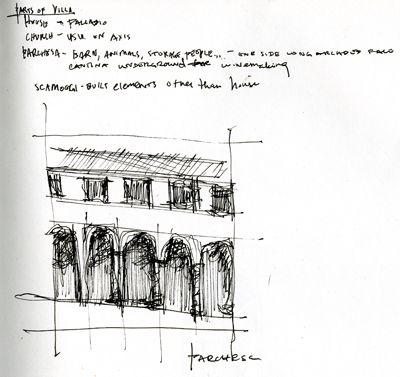 PARTS OF VILLA
HOUSE → PALLADIO
CHURCH - USU ON AXIS
BARCHESA - BARN, ANIMALS, STORAGE, PEOPLE... - ONE SIDE LONG
CANTINA UNDERGROUND FOR WINEMAKING
SCAMOZZI - BUILT ELEMENTS OTHER THAN HOUSE
BARCHESA